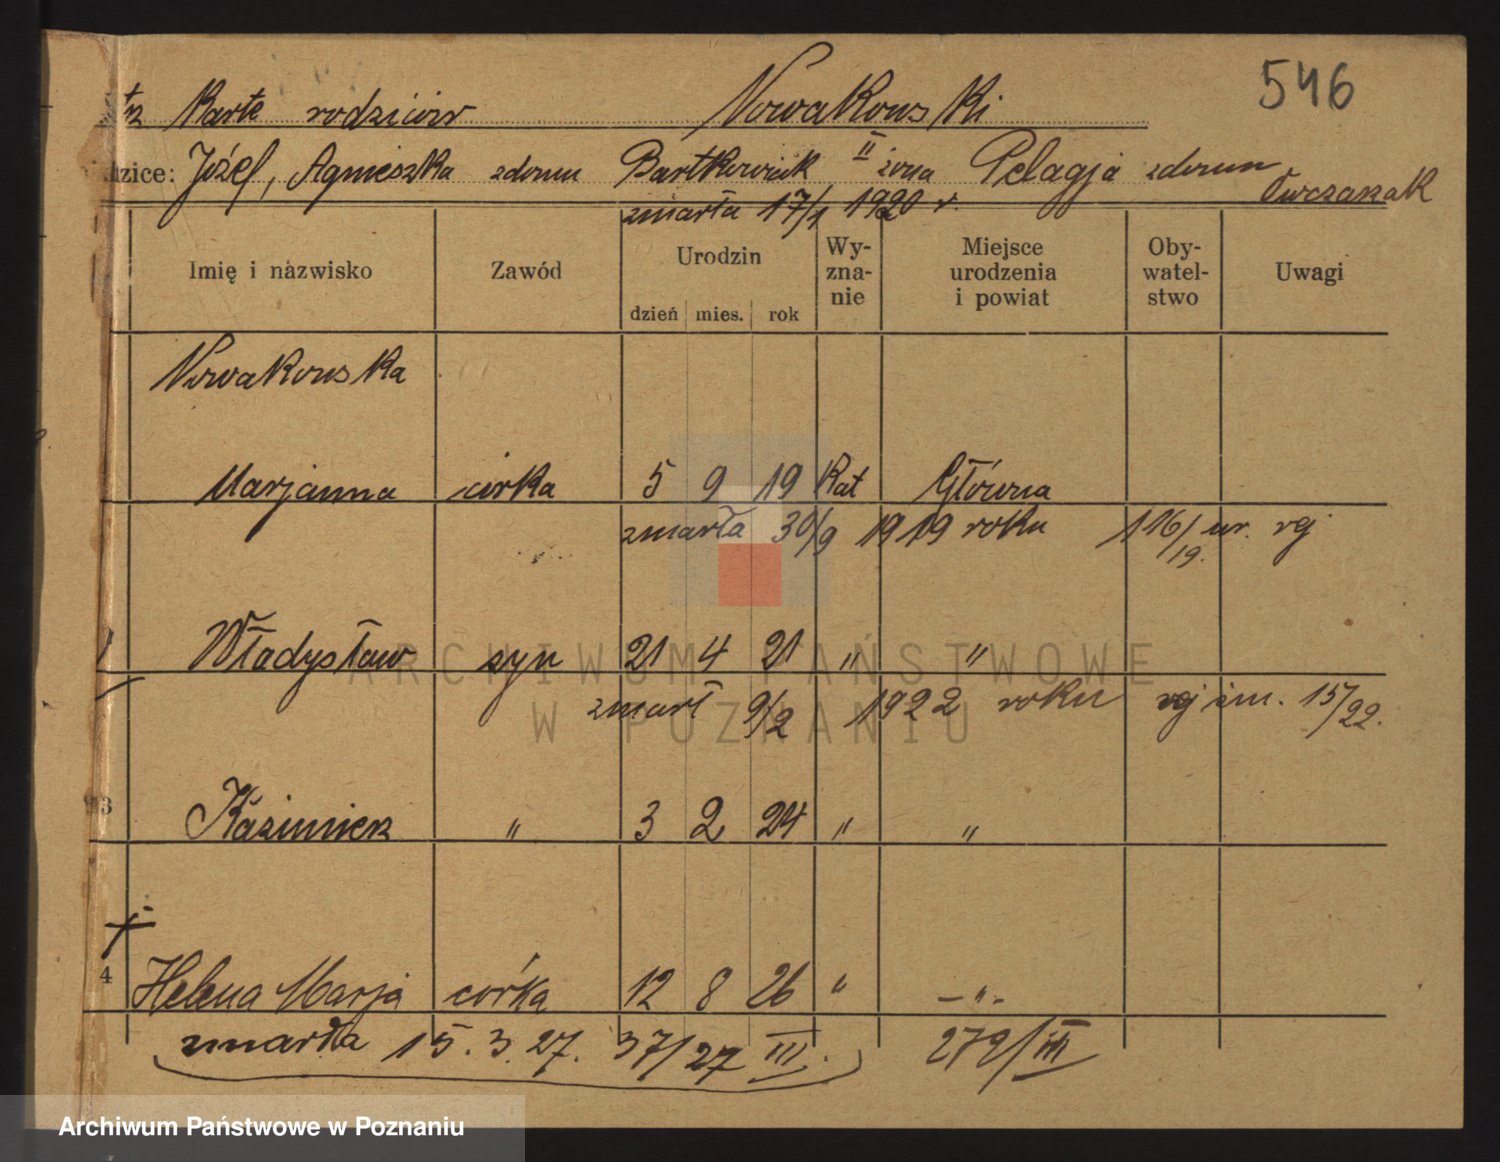 Karte rodziców Nowakowski 546
dzice: Józef, Agnieszka zdomu Bartkowiak II żona Pelagja zdomu Owczarzak
zmarła 17/1 1920 r.
Imię i nazwisko Zawód Urodzin Wy-zna-nie Miejsce urodzenia i powiat Oby-watel-stwo Uwagi
dzień mies. rok
Nowakowska
Marjanna córka 5 9 19 Kat Główna
zmarła 30/9 1919 roku 116/19. ur. rej
Władysław syn 21 4 21 " "
zmarł 9/2 1922 roku rej zm. 15/22.
3 Kazimierz " 3 2 24 " "
4 Helena Marja córka 12 8 26 " - " -
zmarła 15. 3. 27. 37/27 III. 272/III
ARCHIWUM PAŃSTWOWE
W POZNANIU
Archiwum Państwowe w Poznaniu